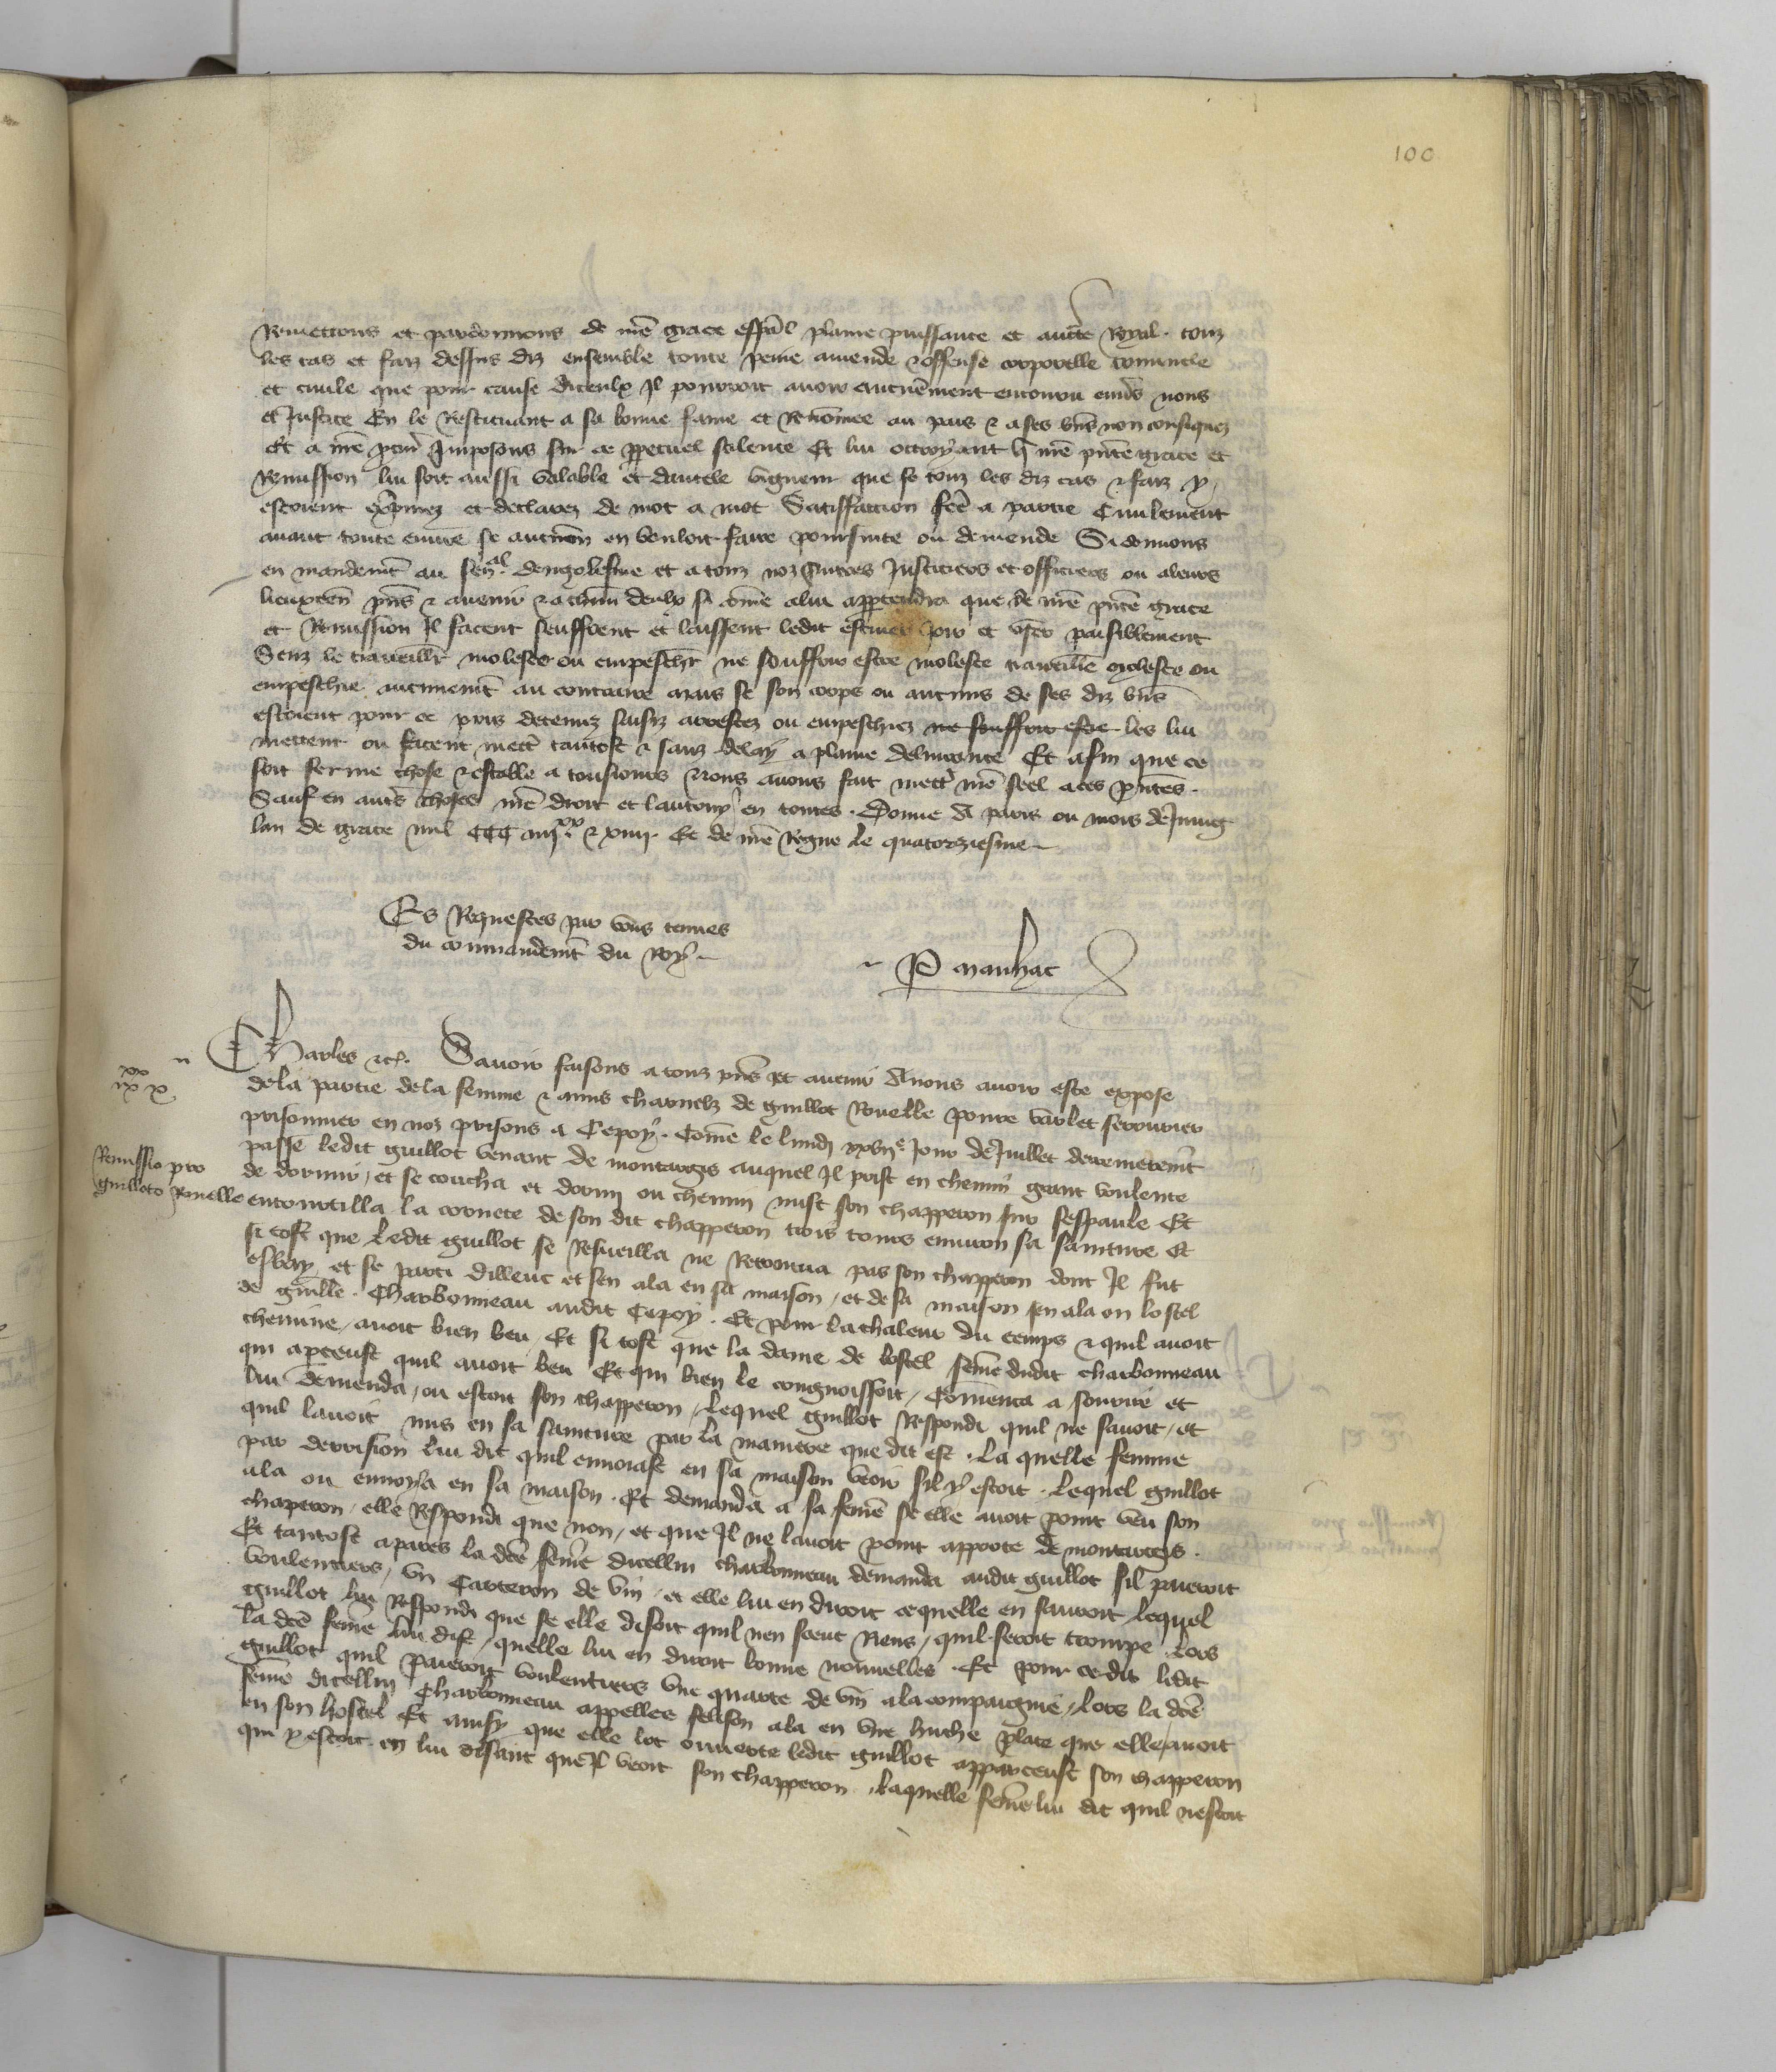 100
Remettons et pardonnons de nre grace espãl plaine puissance et aucte Royal. touz
les cas et faiz dessus diz ensemble toute peine amende & offense corporelle criminele
et civile que pour cause diceulx Il pourroit avoir aucunement encouru envs nous
et Justice En le Restituant a sa bonne fame et Renõmee au pais & a ses bns non confisquez
Et a nre pcur Imposons sur ce ppetuel scilence Et lui octroyant q nre pnte grace et
Remission lui soit aussi valable et dautele vigueur que se touz les diz cas & faiz y
estoient expmez et declarez de mot a mot Satisfaccion fcte a partie Civilement
avant toute euvre se aucuen en vouloit faire poursuite ou demende Si donnons
en mandemt au senal. dengolesme et a touz noz autres Justiciers et officiers ou a leurs
lieuxten pns & avenir & a chun deulx si cõme a lui apptendra que de nre pnte grace
et Remission Il facent seuffrent et laissent ledit Joir et user paisiblement
Senz le travaillr molester ou empeschr ne souffrir estre moleste travaille moleste ou
empeschie aucunemt au contraire mais se son corps ou aucuns de ses diz bns
estoient pour ce pris detenuz saisiz arrestez ou empeschiez ne souffrir estre les lui
mettent ou facent mectr tantost & sanz delay a plaine delivrance Et afin que ce
soit ferme chose & estable a tousiours Nous avons fait mectr nre seel a ces pntes.
Sauf en autrs choses nre droit et lautruy en toutes. Donne A paris ou mois de Juing
lan de grace mil CCC iiijxx & xiiij. Et de nre Regne le quatorziesme
Es Requestes par vous tenues
du commandemt du Roy
P Manhac
xx
ix x
Charles etc. Savoir faisons a touz pns et avenir A nous avoir este expose
de la partie de la femme & amis charnelz de guillot Rouelle povre varlet serourier
prisonnier en noz prisons a Cepoy. Cõme le lundi xxvije Jour de Juillet derremeremt
Remissio pro
guilloto Rouelle
passe ledit guillot venant de montargis auquel Il prist en chemin grant voulente
de dormir, et se coucha et dormi ou chemin mist son chapperon sur sespaule Et
entourtilla la cornete de son dit chapperon trois tours environ sa sainture Et
si tost que ledit guillot se Resveilla ne Retrouva pas son chapperon dont Il fut
esbay et se parti dillenc et sen ala en sa maison, et de sa maison sen ala en lostel
de guille. Charbonneau audit Cepoy. Et pour la chaleur du temps & quil avoit
chemine, avoit bien beu, Et si tost que la dame de lostel feme dudit charbonneau
qui aperceust quil avoit beu Et qui bien le congnoissoit, Cõmenca a sourire et
lui demenda, ou estoit son chapperon, lequel guillot Respondi quil ne savoit, et
quil lavoit mis en sa sainture par la maniere que dit est. La quelle femme
par derrision lui dit quil envoiast en sa maison veoir sil y estoit. Lequel guillot
ala ou envoya en sa maison. Et demanda a sa feme se elle avoit point veu son
chaperon, elle Respondi que non, et que Il ne lavoit point apporte de montargis.
Et tantost apares la dce feme dicellui charbonneau demanda audit guillot sil paieroit
voulentiers, un Carteron de vin, et elle lui en diroit ce quelle en sauroit Lequel
guillot lui Respondi que se elle disoit quil nen sceut Riens, quil seroit trompe. Lors
la dce feme lui dist, quelle lui en diroit bonne nouvelles. Et pour ce dit ledit
guillot quil paieroit voulentiers une quarte de vin a la compaignie, Lors la dce
feme dicellui Charbonneau appellee selison ala en une huche plate que elle avoit
en son hostel Et ainsy que elle lot ouverte ledit guillot apparceust son chapperon
qui y estoit en lui disant que Il veoit son chapperon. Laquelle feme lui dit quil nestoit